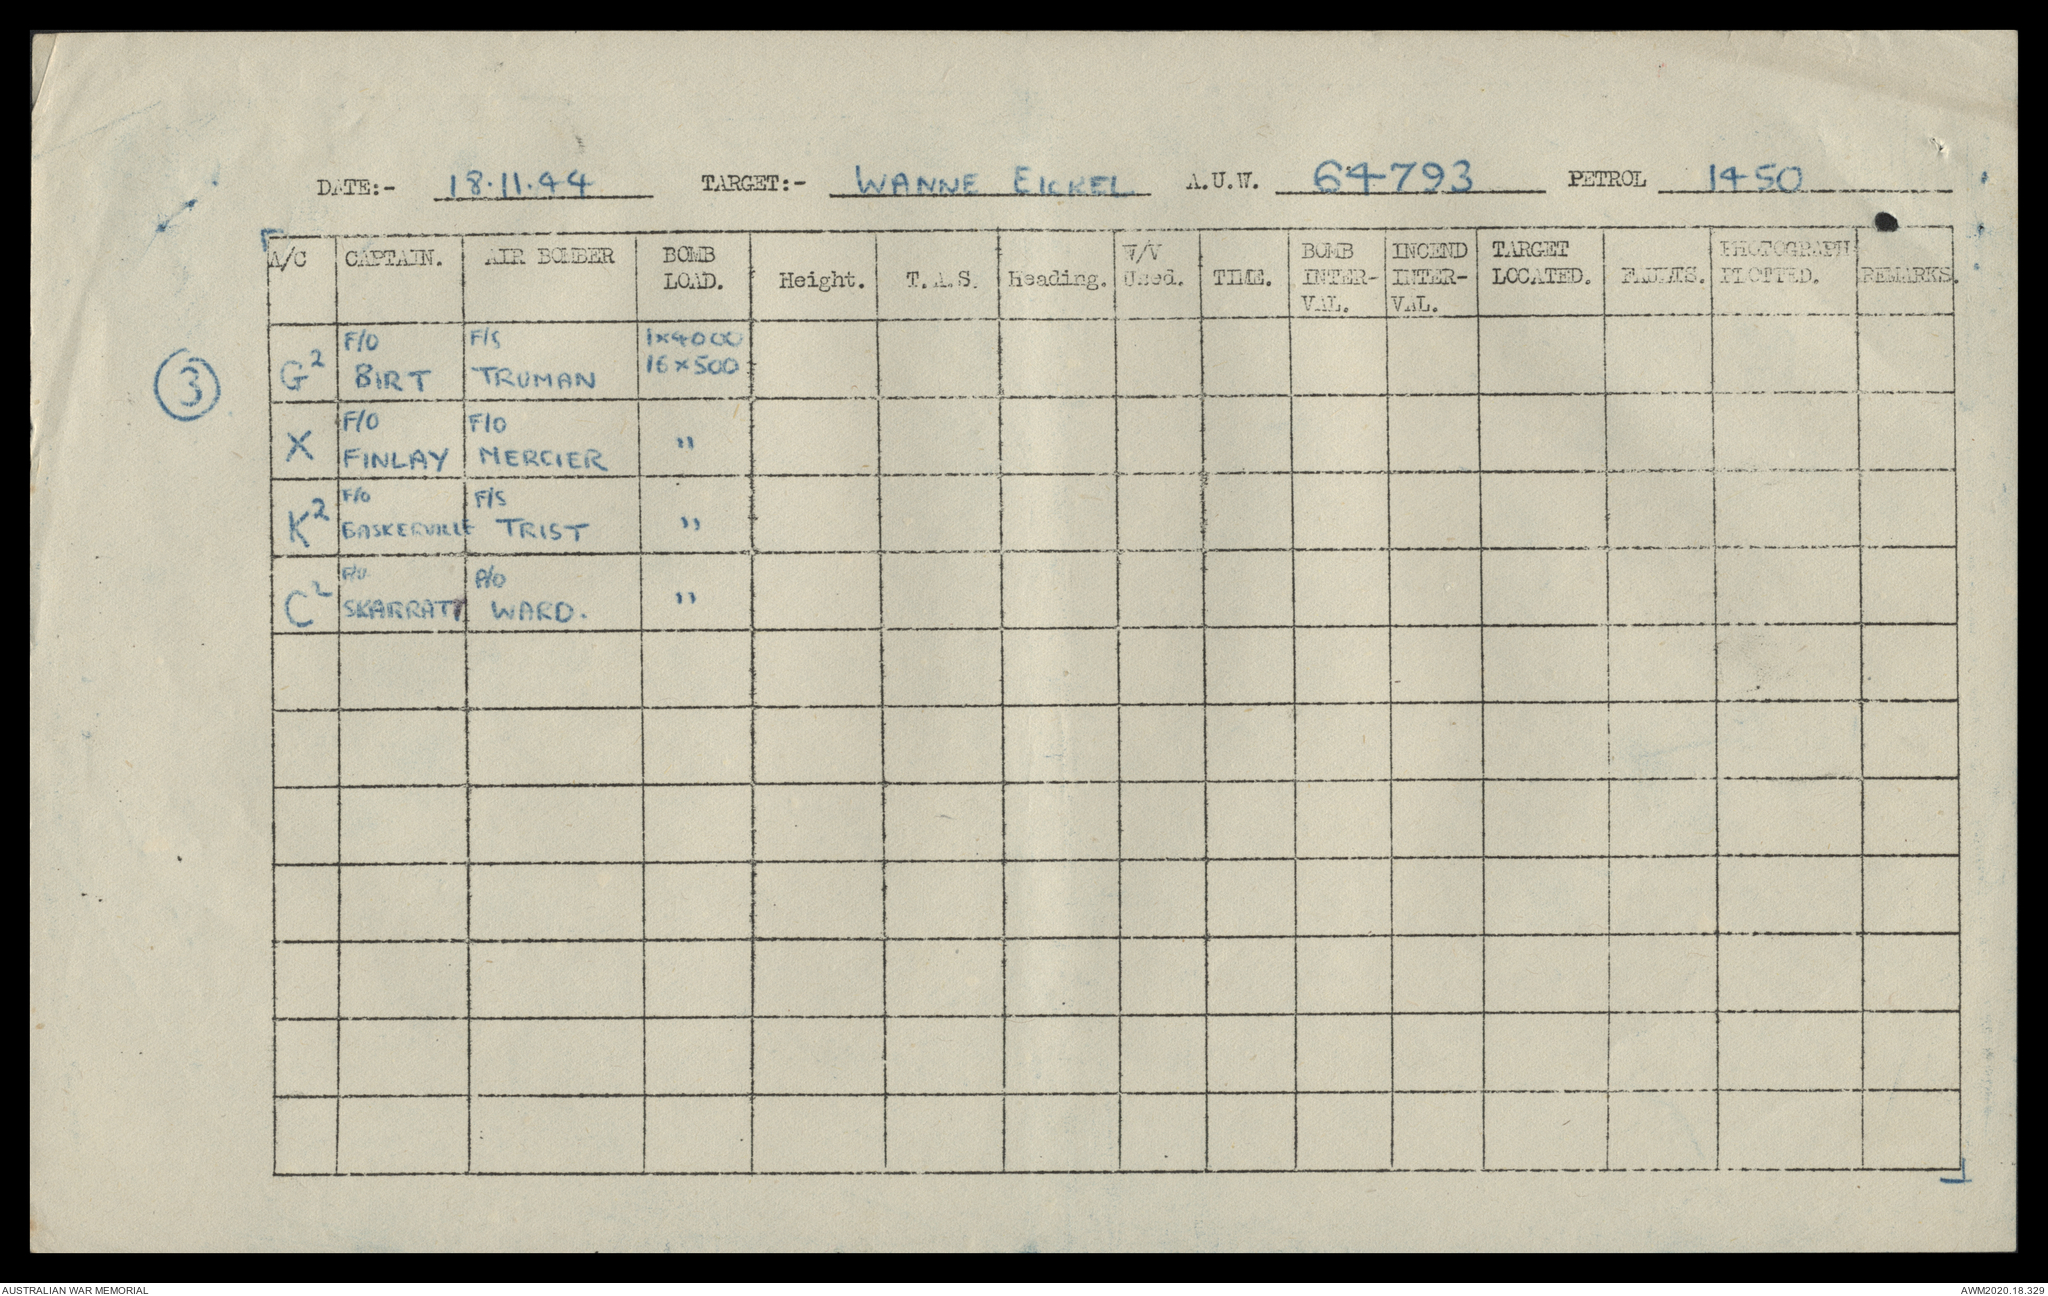 DATE:- 18.11.44 TARGET:- WANNE EICKEL A.U.W. 64793 PETROL 1450
A/C CAPTAIN. AIR BOMBER BOMB LOAD. Height. T.A.S. Heading. W/V Used. TIME. BOMB INTER-VAL. INCEND INTER-VAL. TARGET LOCATED. FAULTS. PHOTOGRAPH PLOTTED. REMARKS.
3
G2 F/O BIRT F/S TRUMAN 1x4000 16x500
X F/O FINLAY F/O MERCIER "
K2 F/O BASKERVILLE F/S TRIST "
C2 SKARRATT P/O WARD. "
AUSTRALIAN WAR MEMORIAL AWM2020.18.329